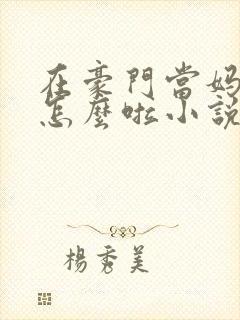 在豪門當媽
怎麼啦小說
楊秀美